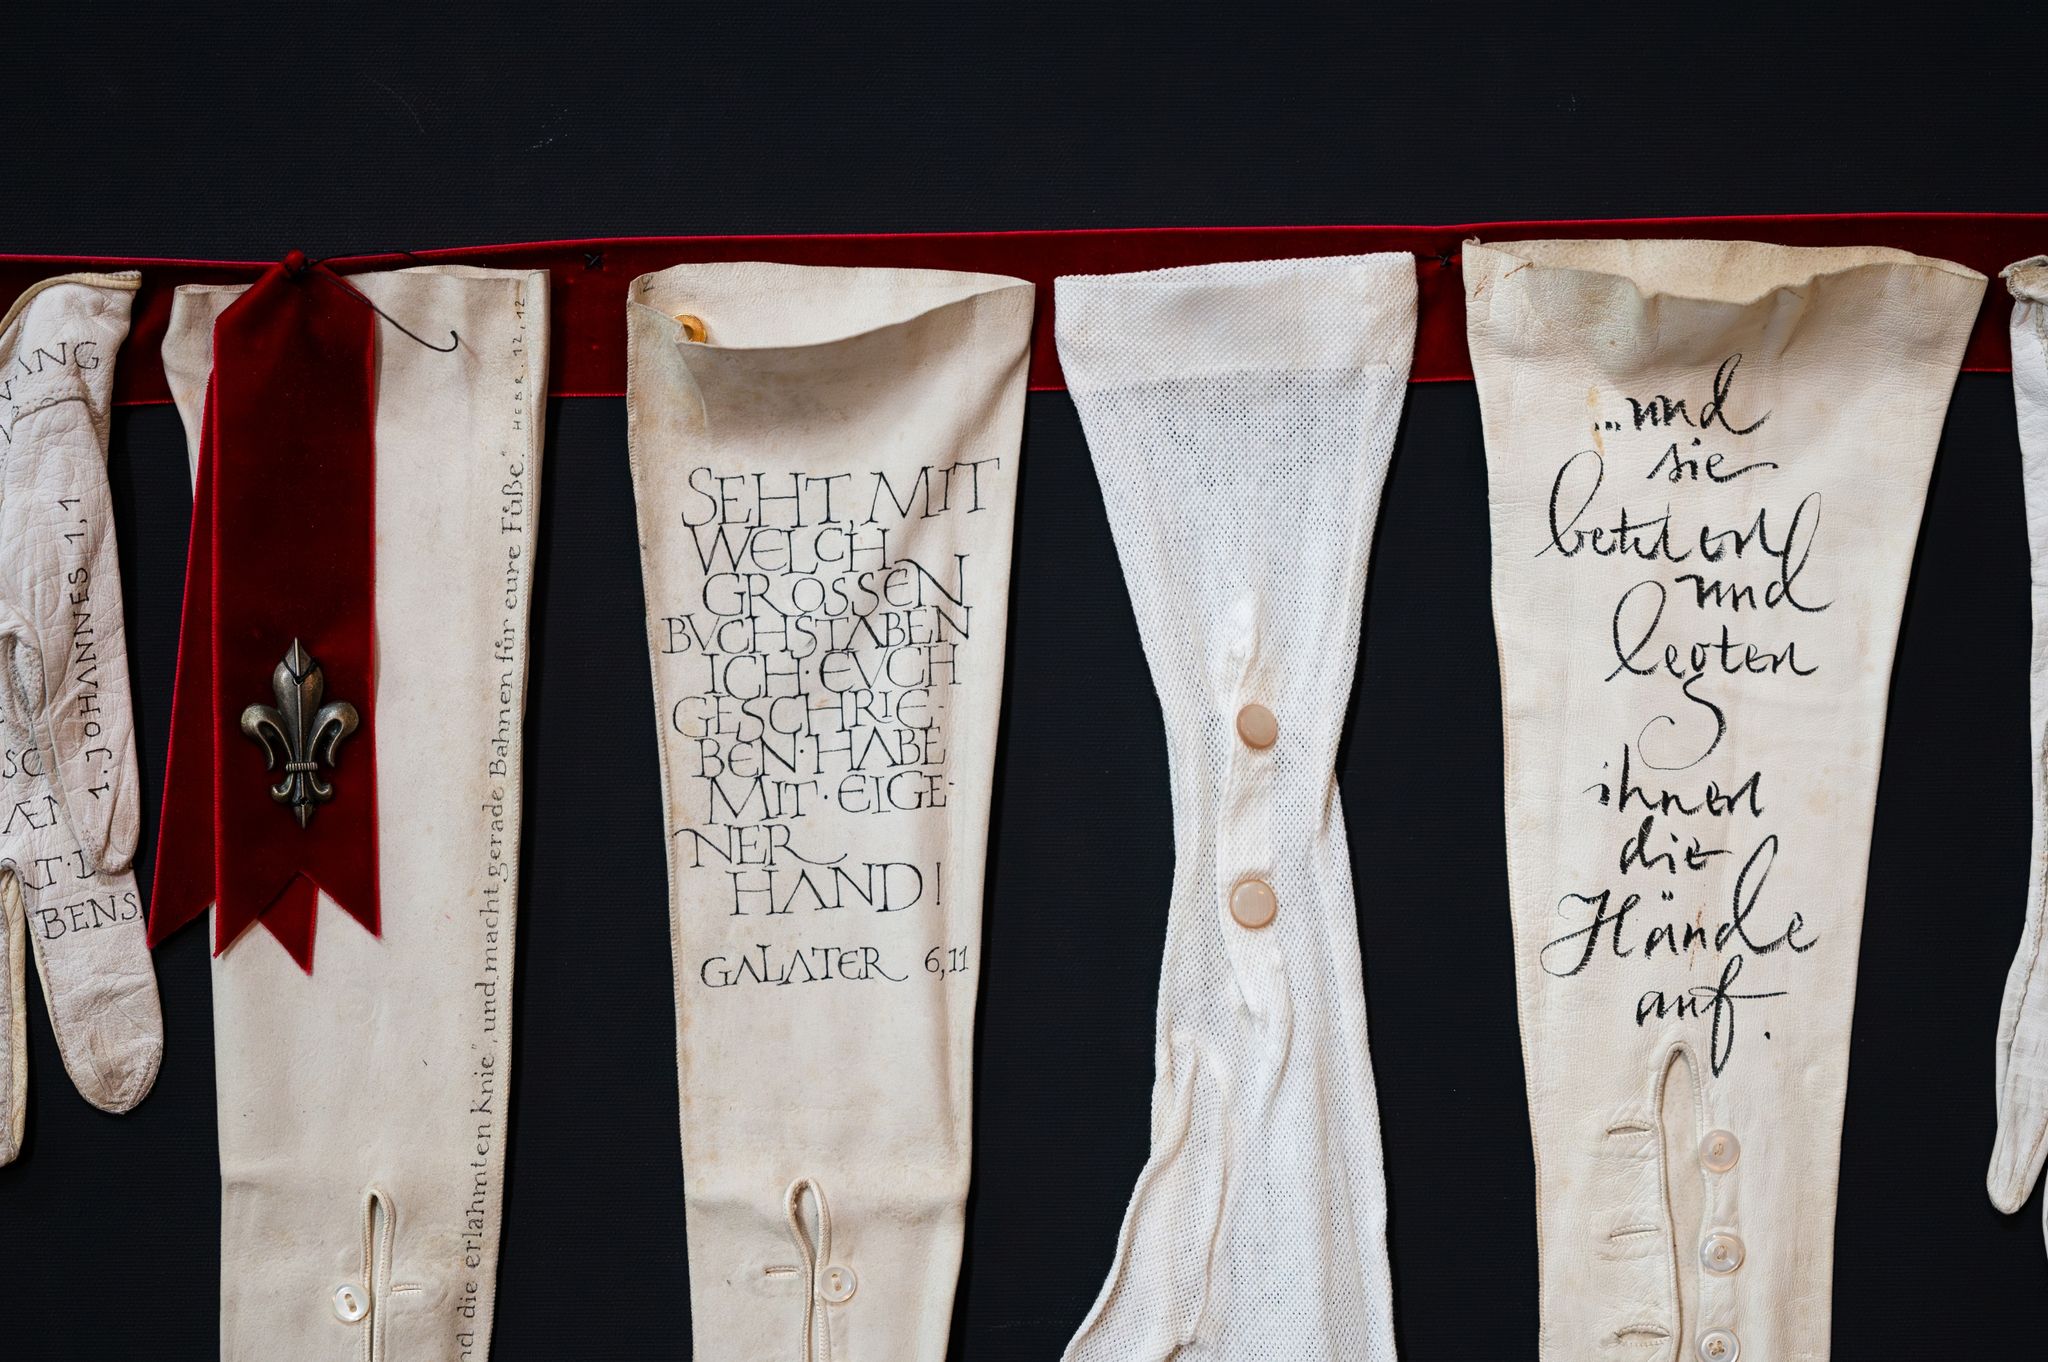 ANG
1. JOHANNES 1,1
BENS.
die erlahmten Knie", „und macht gerade Bahnen für eure Füße." HEBR. 12,12
SEHT, MIT
WELCH
GROSSEN
BVCHSTABEN
ICH·EVCH
GESCHRIE-
BEN·HABE
MIT·EIGE-
NER
HAND!
GALATER 6,11
...und
sie
beteten
und
legten
ihnen
die
Hände
auf.